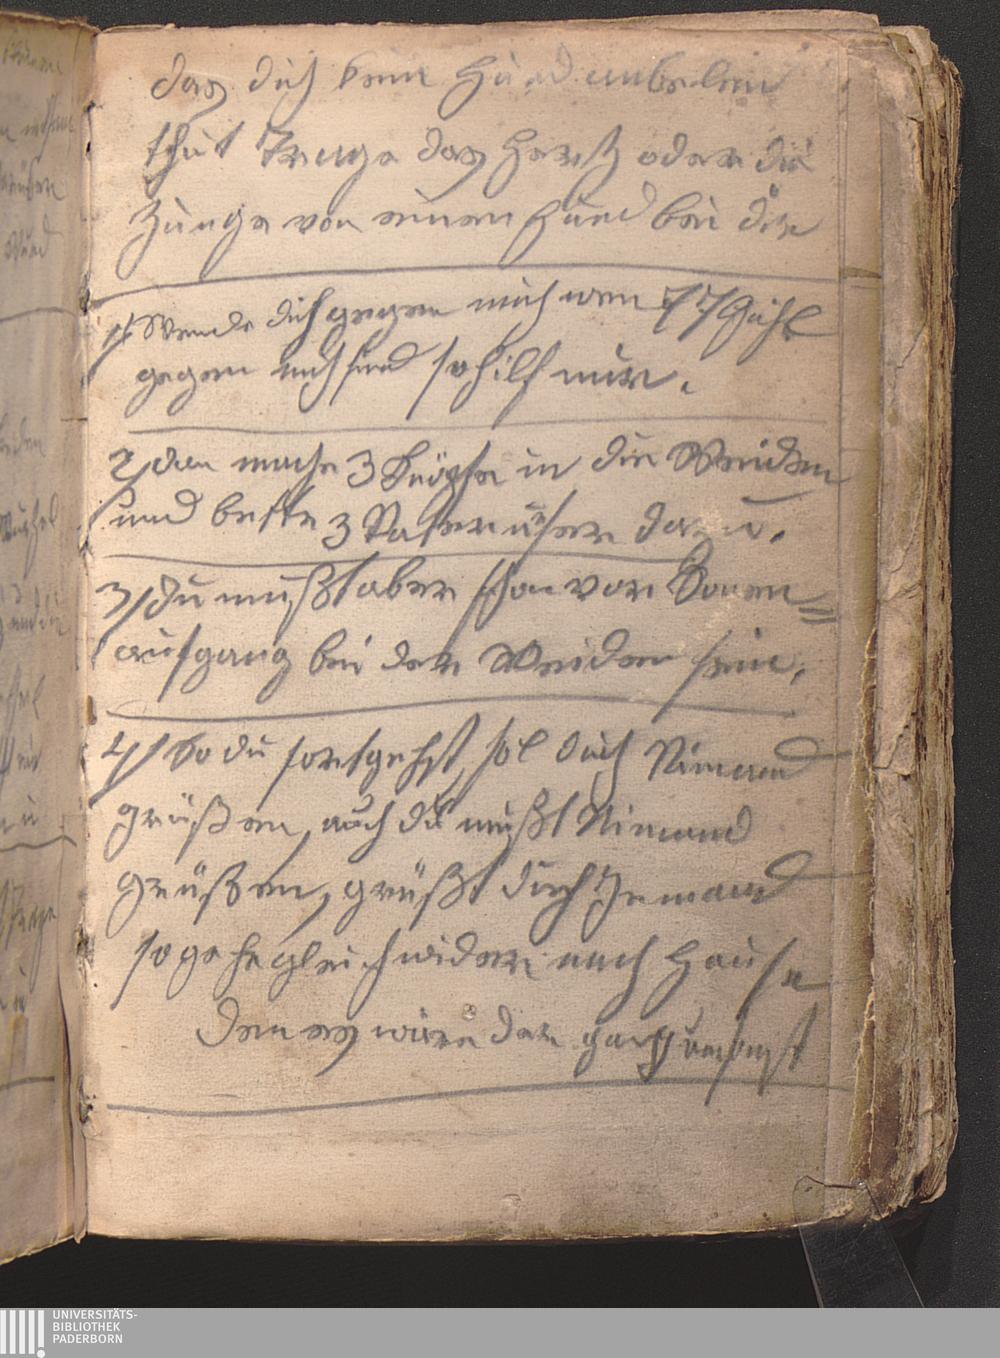 das dich kein Hund anbelen
thut Trage das Hertz oder die
Zunge von einen Hund bei dir
1) Wende dich gegen mich wen 77
gegen mich sind so hilf mir.
2) dan mache 3 Knöpfe in die Weiden
und bette 3 Vater unser dazu.
3) du mußt aber schon vor Sonen=
aufgang bei der Weiden sein.
4) So du fortgehst, sol dich Nimand
grüßen, auch du mußt Nimand
grüßen, grüßt dich Jemand
so gehe gleich wider nach Hause
den es wäre dan ganz umsonst
UNIVERSITÄTS-
BIBLIOTHEK
PADERBORN